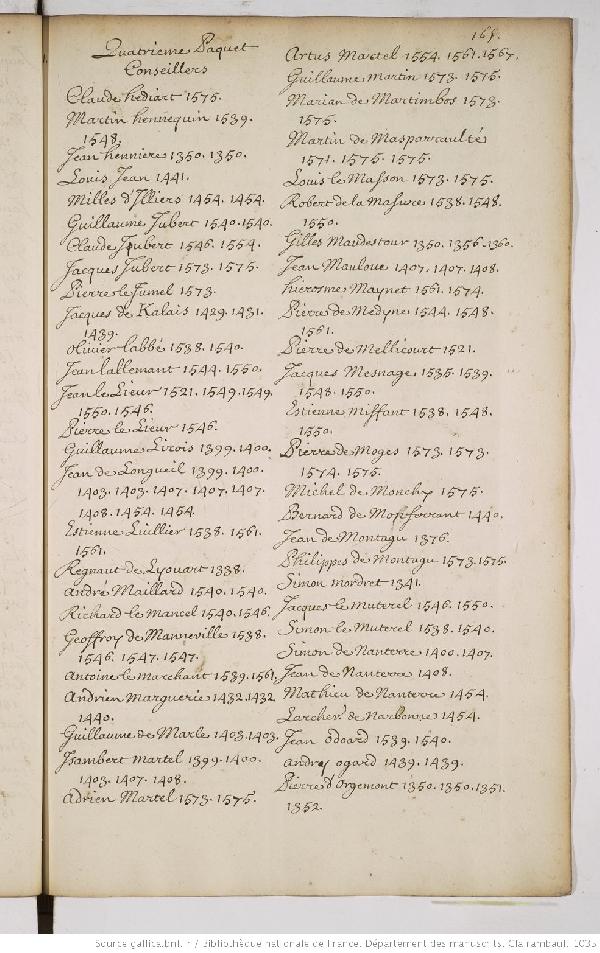 Quatrieme Paquet
Conseillers
Claude hediart 1575.
Martin hennequin 1539.
1548.
Jean henniere 1350. 1350.
Louis Jean 1441.
Milles d'Illiers 1454. 1454.
Guillaume Jubert 1540. 1540.
Claude Joubert 1546. 1554.
Jacques Jubert 1573. 1575.
Pierre le Jumel 1573.
Jacques de Kalais 1429. 1431.
1439.
Olivier labbé 1538. 1540.
Jean lallemant 1544. 1550.
Jean le Lieur 1521. 1549. 1549.
1550. 1546.
Pierre le Lieur 1546.
Guillaume Lirois 1399. 1400.
Jean de Longueil 1399. 1400.
1403. 1403. 1407. 1407. 1407.
1408. 1454. 1454.
Estienne Luillier 1538. 1561.
1561.
Regnaut de Lyouart 1338.
André Maillard 1540. 1540.
Richard le Mancel 1540. 1546.
Geoffroy de Manneville 1538.
1546. 1547. 1547.
Antoine le marchant 1539. 1561.
Andrien Marguerie 1432. 1432
1440.
Guillaume de Marle 1403. 1403.
Jsambert Martel 1399. 1400.
1403. 1407. 1408.
Adrien Martel 1573. 1575.
Artus Martel 1554. 1561. 1567.
Guillaume Martin 1573. 1575.
Marian de Martimbos 1573.
1575.
Martin de Masparraulté
1571. 1575. 1575.
Louis le Masson 1573. 1575.
Robert de la Masure 1538. 1548.
1550.
Gilles Maudestour 1350. 1356. 1360.
Jean Mauloue 1407. 1407. 1408.
hierosme Maynet 1561. 1574.
Pierre de Medyne 1544. 1548.
1561.
Pierre de Mellicourt 1521.
Jacques Mesnage 1535. 1539.
1548. 1550.
Estienne Miffant 1538. 1548.
1550.
Pierre de Moges 1573. 1573.
1574. 1575.
Michel de Monchy 1575.
Bernard de 1440.
Jean de Montagu 1376.
Philippes de Montagu 1573. 1575.
Simon mordret 1341.
Jacques le Muterel 1546. 1550.
Simon le Muterel 1538. 1540.
Simon de Nanterre 1400. 1407.
Jean de Nanterre 1408.
Mathieu de Nanterre 1454.
Larchev. de Narbonne 1454.
Jean odoard 1539. 1540.
andrey ogard 1439. 1439.
Pierre d'Orgemont 1350. 1350. 1351.
1352.
Source gallica.bnf.fr / Bibliothèque nationale de France. Département des manuscrits. Clairambault 1035